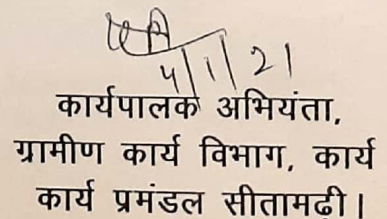 4/1/21
कार्यपालक अभियंता,
ग्रामीण कार्य विभाग, कार्य
कार्य प्रमंडल सीतामढ़ी।